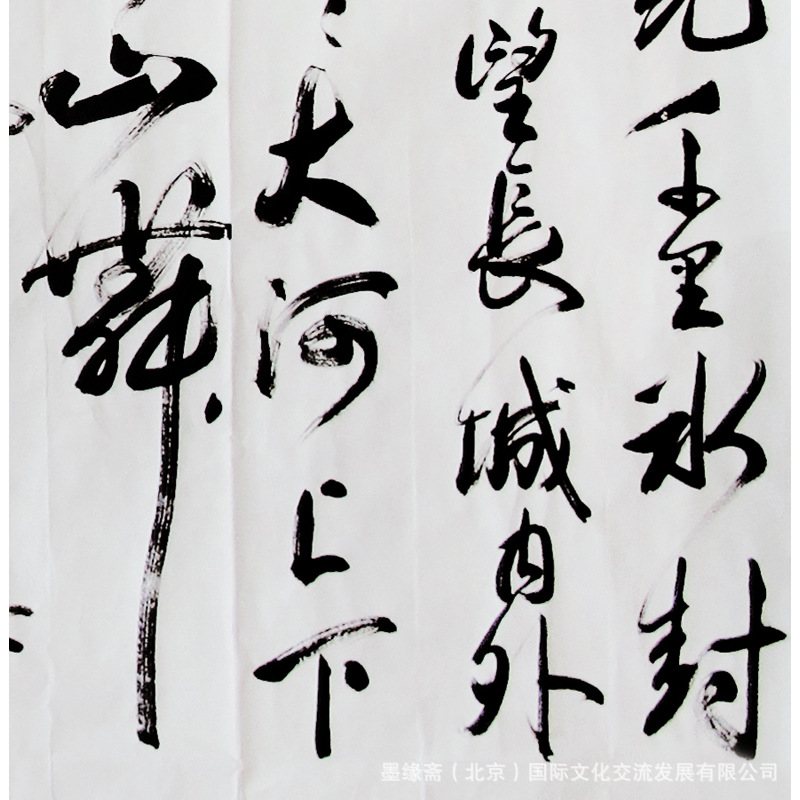 千里冰封
望長城内外
大河上下
山舞
墨缘斋（北京）国际文化交流发展有限公司